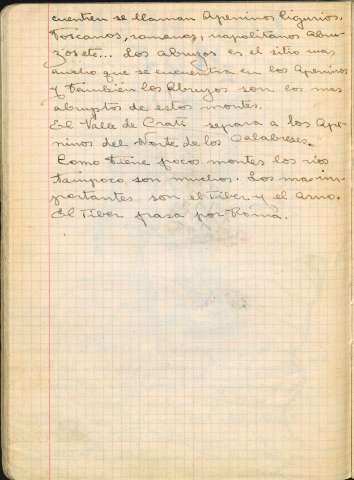 cuentren se llaman Apeninos Ligurios,
Toscanos, romanos, napolitanos Abru-
zos etc... Los Abruzos es el sitio mas
ancho que se encuentra en los Apeninos
y también los Abruzos son los mas
abruptos de estos montes.
El Valle de Crati separa a los Ape-
ninos del Norte de los Calabreses.
Como tiene pocos montes los rios
tampoco son muchos. Los mas im-
portantes son el Tiber y el Arno.
El Tiber pasa por Roma.